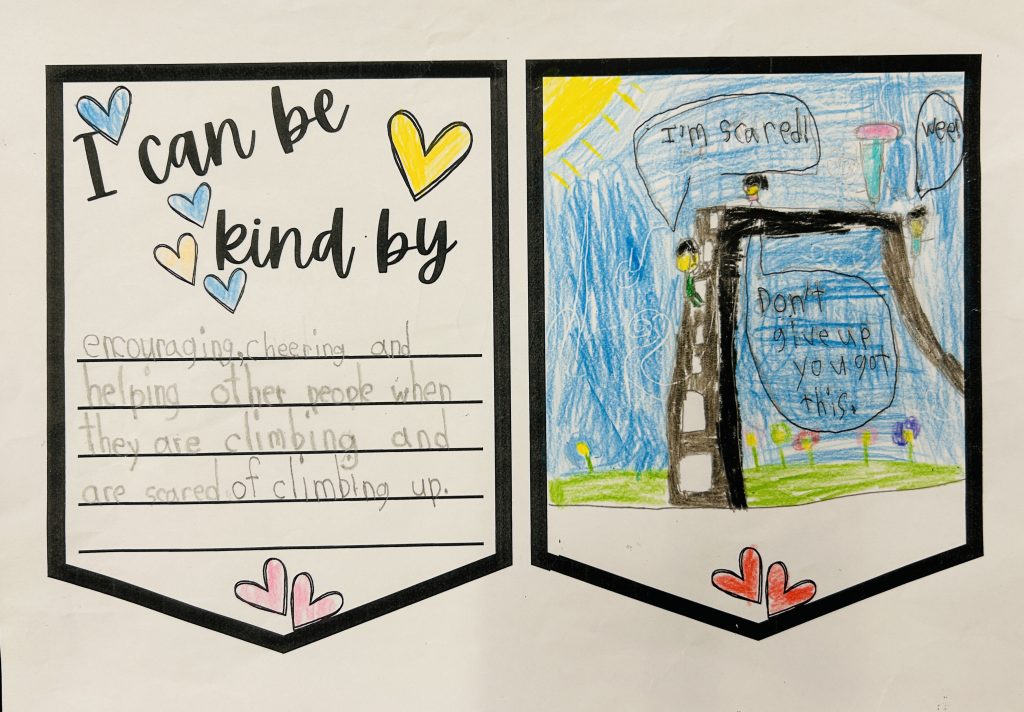 I can be
kind by
encouraging, cheering and
helping other people when
they are climbing and
are scared of climbing up.
I'm scared!
Wee!
Don't
give up
you got
this.